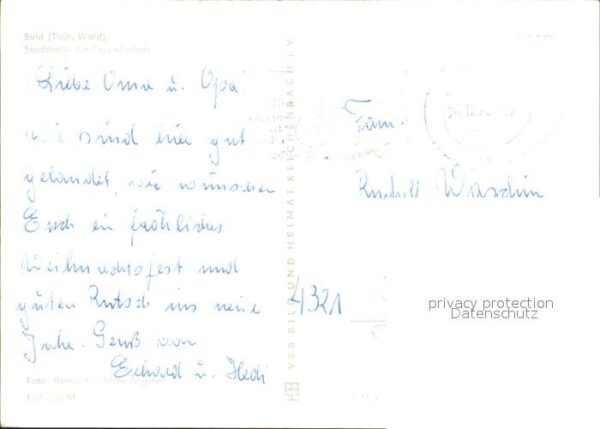 Suhl (Thür. Wald)
Stadthalle der Freundschaft
Liebe Oma u. Opa!
wir sind hier gut
gelandet, wir wünschen
Euch ein fröhliches
Weihnachtsfest und
guten Rutsch ins neue
Jahr. Gruß von
Erhard u. Hedi
Fam.
Rudolf
4321
VEB BILD UND HEIMAT REICHENBACH I. V.
Foto:
privacy protection
Datenschutz